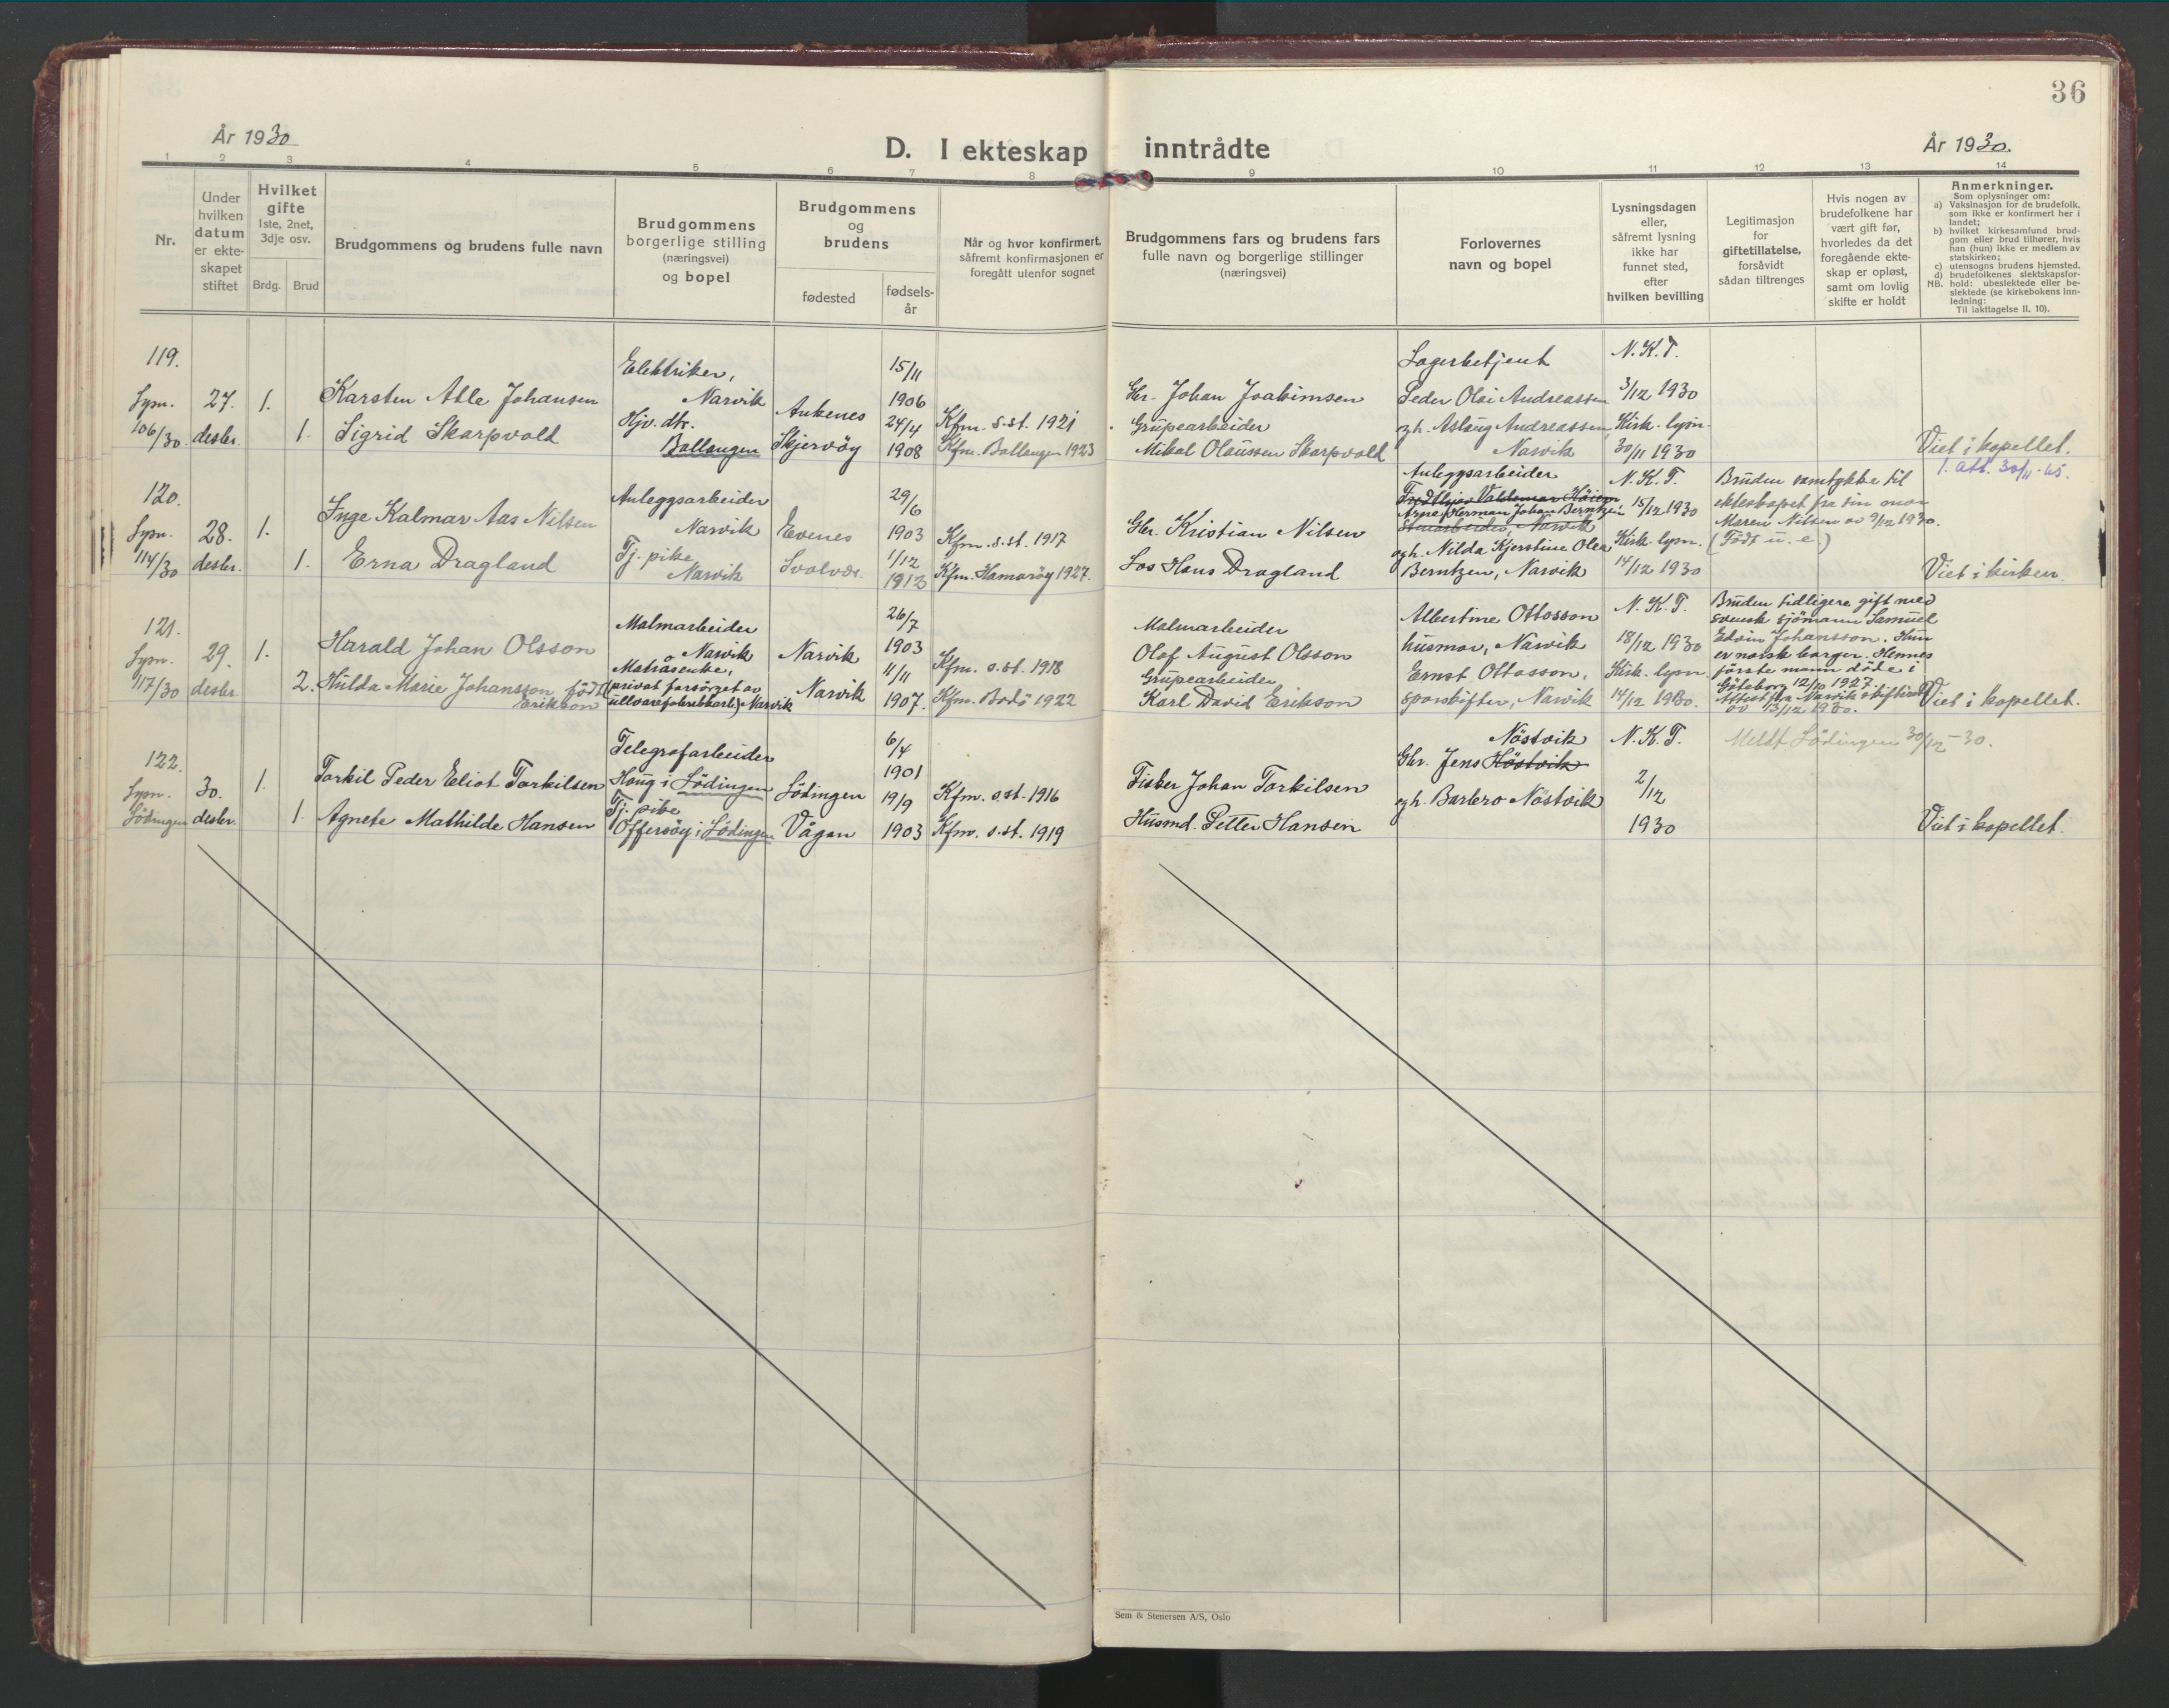 36
År 1930
D. I ekteskap inntrådte
År 1930.
1 2 3 4 5 6 7 8 9 10 11 12 13 14
Nr.
Under
hvilken
datum
er ekte-
skapet
stiftet
Hvilket
gifte
1ste, 2net,
3dje osv.
Brdg. Brud
Brudgommens og brudens fulle navn
Brudgommens
borgerlige stilling
(næringsvei)
og bopel
Brudgommens
og
brudens
fødested
fødsels-
år
Når og hvor konfirmert,
såfremt konfirmasjonen er
foregått utenfor sognet
Brudgommens fars og brudens fars
fulle navn og borgerlige stillinger
(næringsvei)
Forlovernes
navn og bopel
Lysningsdagen
eller,
såfremt lysning
ikke har
funnet sted,
efter
hvilken bevilling
Legitimasjon
for
giftetillatelse,
forsåvidt
sådan tiltrenges
Hvis nogen av
brudefolkene har
vært gift før,
hvorledes da det
foregående ekte-
skap er opløst,
samt om lovlig
skifte er holdt
Anmerkninger.
Som oplysninger om:
a) Vaksinasjon for de brudefolk,
som ikke er konfirmert her i
landet;
b) hvilket kirkesamfund brud-
gom eller brud tilhører, hvis
han (hun) ikke er medlem av
statskirken;
c) utensogns brudens hjemsted.
d) brudefolkenes slektskapsfor-
NB. hold: ubeslektede eller be-
slektede (se kirkebokens inn-
ledning:
Til iakttagelse II, 10).
119.
Lysn.
106/30
27.
desbr.
1.
1.
Karsten Atle Johansen
Sigrid Skarpvold
Elektriker,
Narvik
Hjv. dtr.
Ballangen
Ankenes
Skjervöy
15/11
1906
24/4
1908
Kfm. s.st. 1921
Kfm. Ballangen 1923
Gbr. Johan Joakimsen
Grupearbeider
Mikal Olaussen Skarpvold
Lagerbetjent
Peder Olai Andreassen
og h. Aslaug Andreassen,
Narvik
N.K.T.
3/12 1930
Kirk. lysn.
30/11 1930
Viet i kapellet.
1. att. 30/11-65.
120.
Lysn.
114/30
28.
desbr.
1.
1.
Inge Kalmar Aas Nilsen
Erna Dragland
Anleggsarbeider
Narvik
Tj. pike
Narvik
Evenes
Svolvær.
29/6
1903
1/12
1912
Kfm. s.st. 1917
Kfm. Hamaröy 1927.
Gbr. Kristian Nilsen
Los Hans Dragland
Anleggsarbeider
Fredthjov Valdemar Höien
Arne Herman Johan Berntzen
Stuearbeider, Narvik
og h. Nilda Kjerstine Olea
Berntzen, Narvik
N.K.T.
15/12 1930
Kirk. lysn.
14/12 1930
Bruden samtykke til
ekteskapet fra sin mor
Maren Nilsen av 9/12 1930.
(Född u. e.)
Viet i kirken.
121.
Lysn.
117/30
29.
desbr.
1.
2.
Harald Johan Olsson
Hulda Marie Johansson född
Erikson
Malmarbeider
Narvik
Matrosenke,
(privat forsörget av
ullvarefabrikkarb.) Narvik
Narvik
Narvik
26/7
1903
11/11
1907.
Kfm. s.st. 1918
Kfm. Bodö 1922
Malmarbeider
Olof August Olsson
Grupearbeider
Karl David Erikson
Albertine Ottosson
husmor, Narvik
Ernst Ottosson,
sporskifter, Narvik
N.K.T.
18/12 1930
Kirk. lysn.
14/12 1930.
Bruden tidligere gift med
svensk sjömann Samuel
Edvin Johansson. Hun
er norsk borger. Hennes
förste mann döde i
Göteborg 12/10 1927.
Attest fra Narvik skifterett
av 13/12 1930.
Viet i kapellet.
122.
Lysn.
Lödingen
30.
desbr.
1.
1.
Torkil Peder Eliot Torkilsen
Agnete Mathilde Hansen
Telegrafarbeider
Haug i Lödingen
Tj. pike
Offersöy i Lödingen
Lödingen
Vågan
6/4
1901
19/9
1903
Kfm. s.st. 1916
Kfm. s.st. 1919
Fisker Johan Torkilsen
Husmd. Petter Hansen
Nöstvik
Gbr. Jens Höstvik
og h. Barbro Nöstvik
N.K.T.
2/12
1930
Meldt Lödingen 30/12-30.
Viet i kapellet.
Sem & Stenersen A/S, Oslo